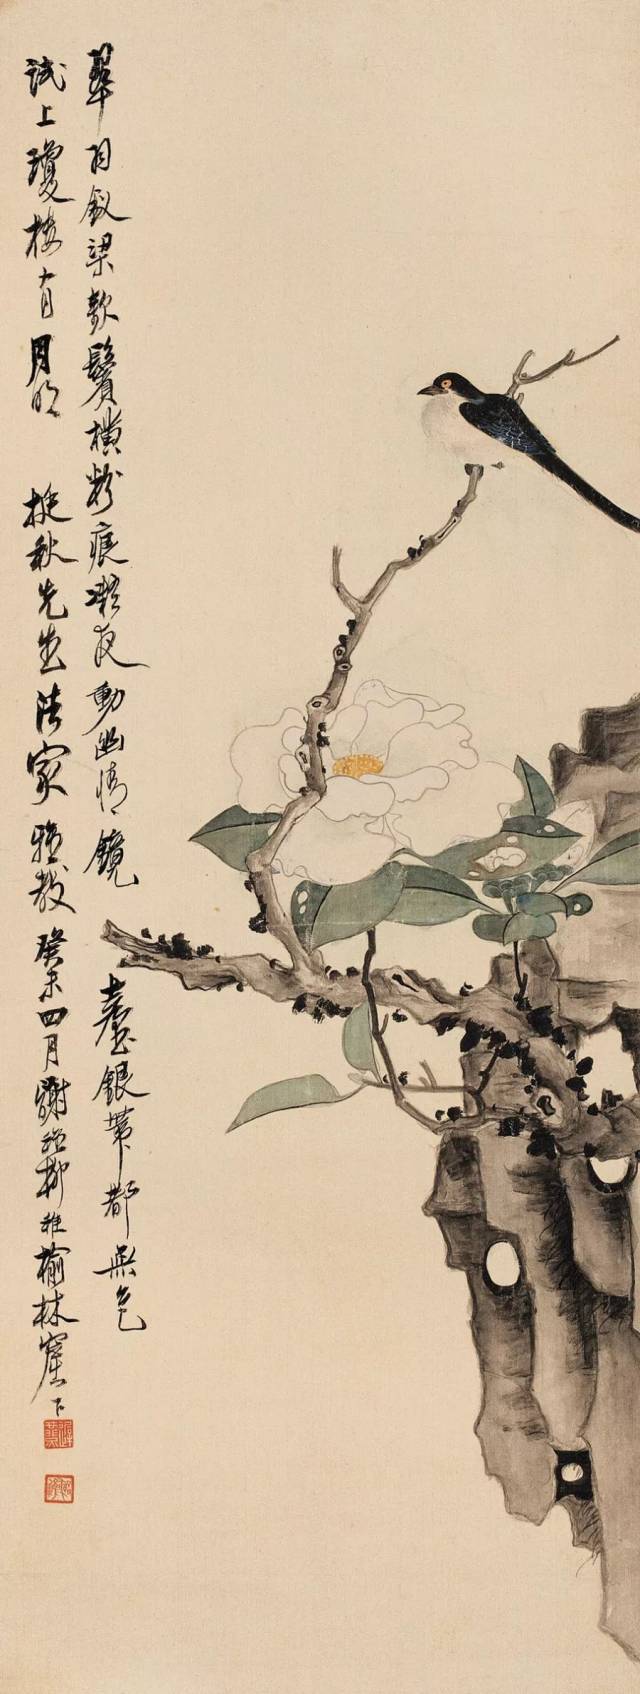 翠羽釵梁欹鬢橫粉痕凝夜動幽情鏡臺銀燭都無色
試上瓊樓有月明　挺秋先生法家雅教　癸未四月謝稚柳在榆林窟下